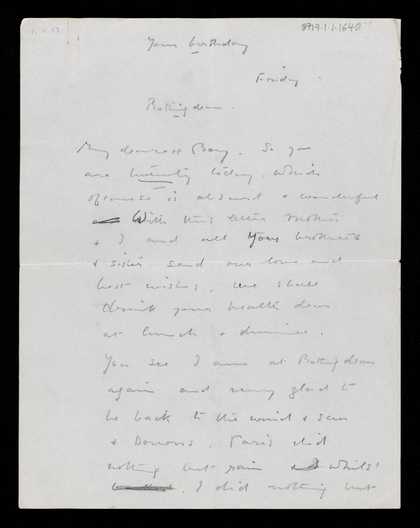 8919.1.1.1640
Your birthday
Friday.
Rottingdean.
My dearest Boy. So you
are twenty today. which
of course is absurd & wonderful
With this letter Mother
& I and all your brothers
& sister send our love and
best wishes, we shall
drink your health dear
at lunch & dinner.
You see I am at Rottingdean
again and very glad to
be back to the wind & sun
& Downs. Paris did
nothing but rain whilst
I did nothing but